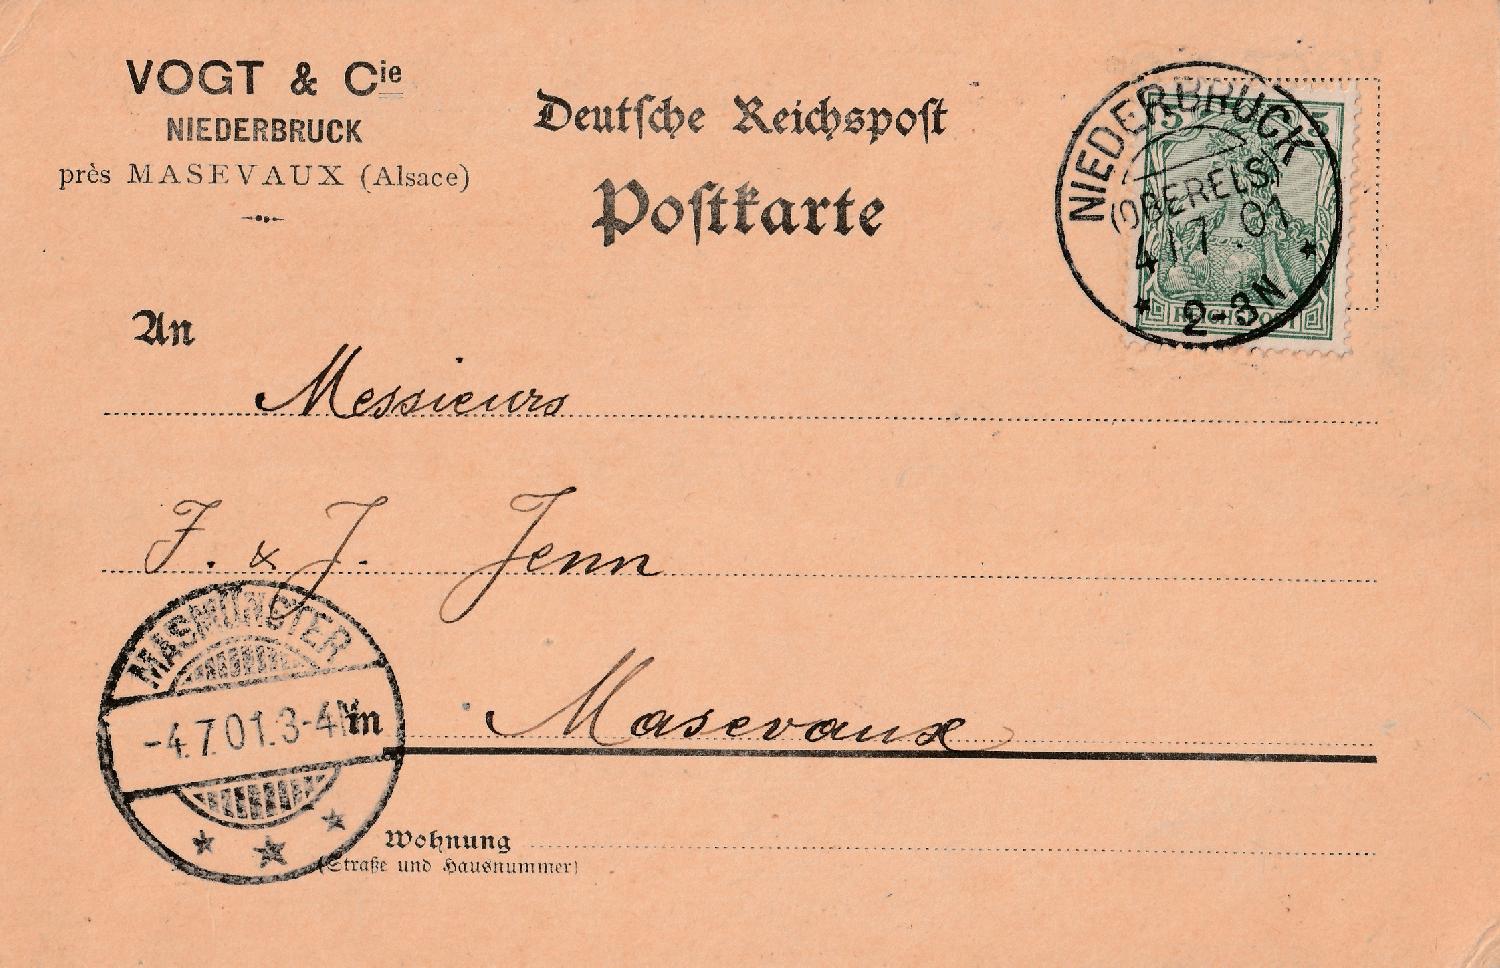 VOGT & Cie
NIEDERBRUCK
près MASEVAUX (Alsace)
Deutsche Reichspost
Postkarte
NIEDERBRUCK
(OBERELS)
4/7.01
2-3N
5 5
REICHSPOST
An
Messieurs
J. & J. Jenn
MASMÜNSTER
-4.7.01.3-4N
in Masevaux
Wohnung
(Straße und Hausnummer)